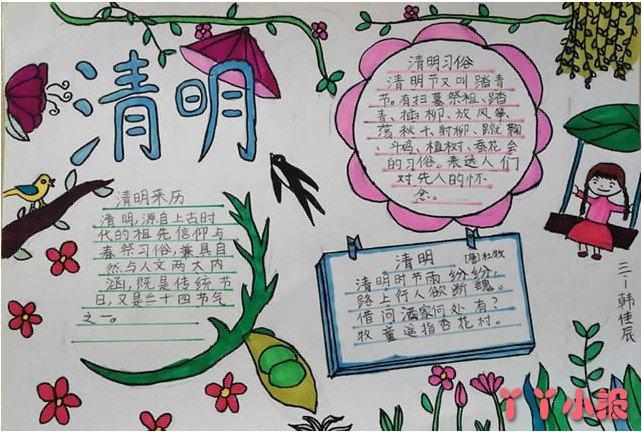 清明
清明习俗
清明节又叫踏青
节。有扫墓祭祖、踏
青、插柳、放风筝、
荡秋千、射柳、蹴鞠
、斗鸡、植树、蚕花会
的习俗。表达人们
对先人的怀
念。
清明来历
清明,源自上古时
代的祖先信仰与
春祭习俗,兼具自
然与人文两大内
涵,既是传统节
日,又是二十四节气
之一。
清明 [唐]杜牧
清明时节雨纷纷,
路上行人欲断魂。
借问酒家何处有?
牧童遥指杏花村。
三、1韩佳辰
丫丫小报